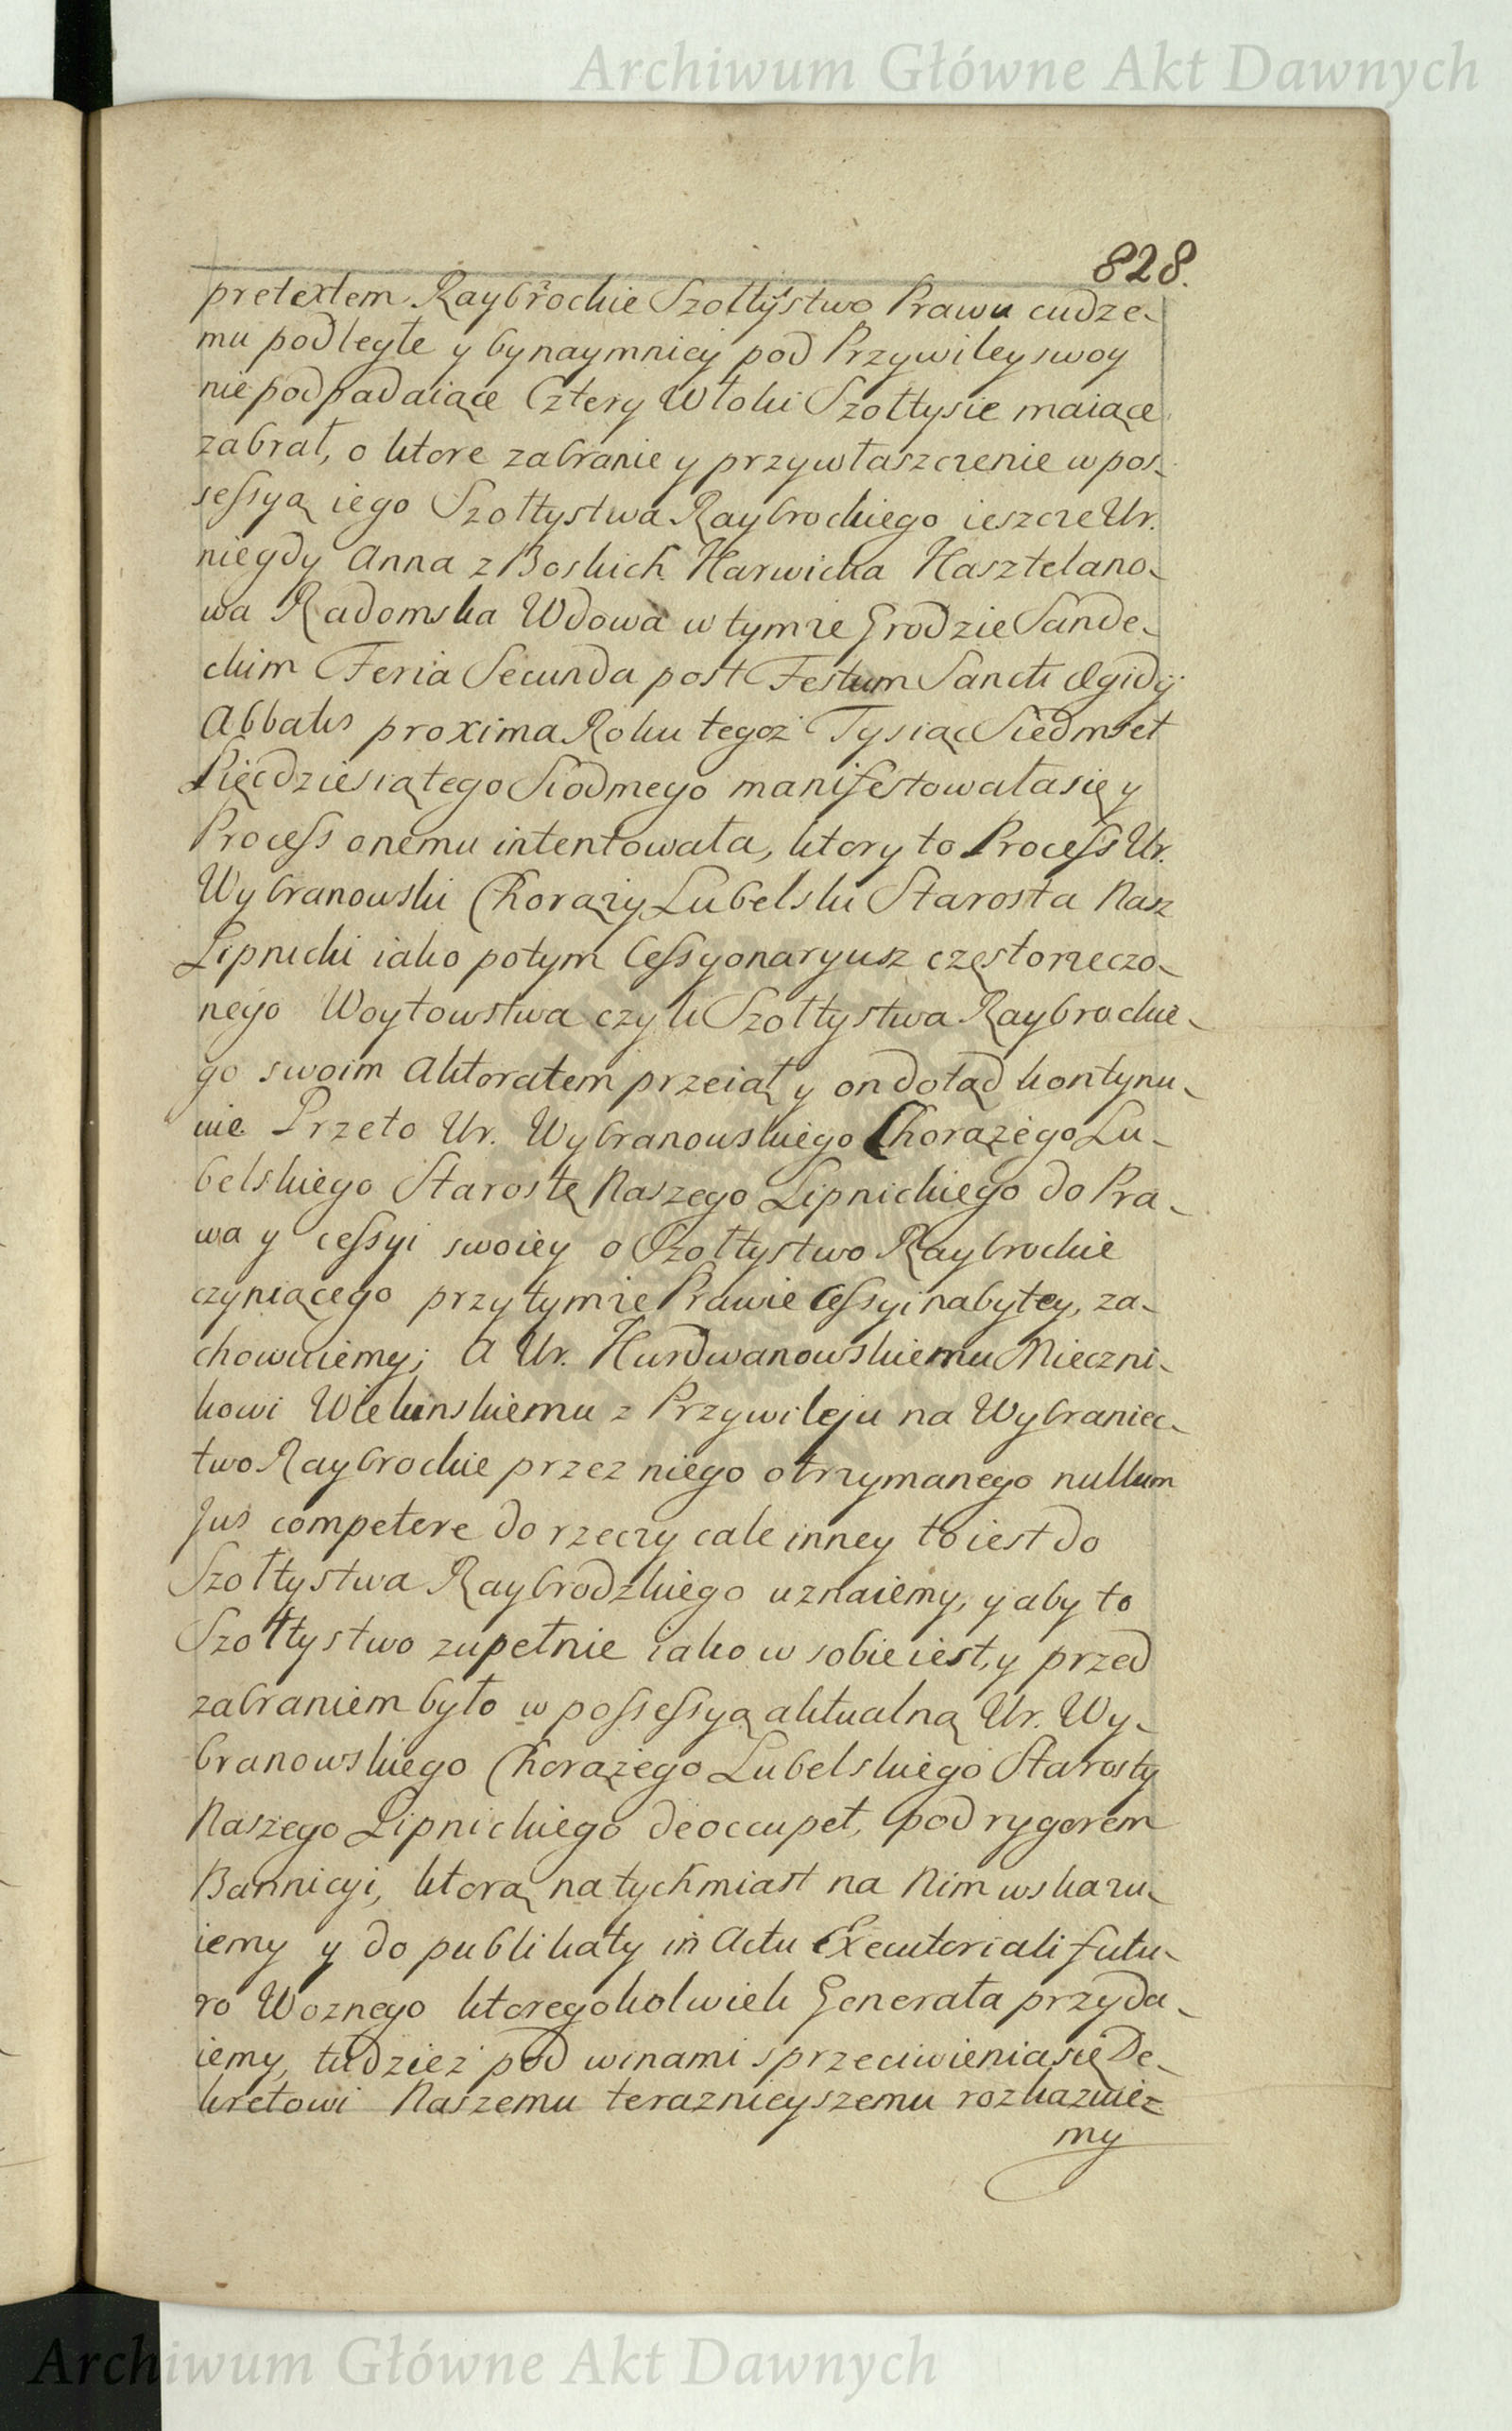 Archiwum Główne Akt Dawnych
828.
pretextem Raybrockie Szołtystwo Prawu cudze-
mu podległe y bynaymniey pod Przywiley swoy
nie podpadaiące Cztery Włoki Szołtysie maiące
zabrał, o ktore zabranie y przywłaszczenie w pos-
sessyą iego Szołtystwa Raybrockiego ieszcze Ur.
niegdy Anna z Boskich Karwicka Kasztelano-
wa Radomska Wdowa w tymże Grodzie Sande-
ckim Feria Secunda post Festum Sancti Ægidij
Abbatis proxima Roku tegoż Tysiąc Siedmset
Pięcdziesiątego Siodmego manifestowała się y
Process onemu intentowała, ktory to Process Ur.
Wybranowski Chorąży Lubelski Starosta Nasz
Lipnicki iako potym Cessyonaryusz częstorzeczo-
nego Woytowstwa czyli Szołtystwa Raybrockie-
go swoim Aktoratem przeiął y on dotąd kontynu-
uie Przeto Ur. Wybranowskiego Chorążego Lu-
belskiego Starostę Naszego Lipnickiego do Pra-
wa y cessyi swoiey o Szołtystwo Raybrockie
czyniącego przy tymże Prawie Cessyi nabytey, za-
chowuiemy; A Ur. Hurdwanowskiemu Mieczni-
kowi Wielunskiemu z Przywileju na Wybraniec-
two Raybrockie przez niego otrzymanego nullum
Jus competere do rzeczy cale inney to iest do
Szołtystwa Raybrodzkiego uznaiemy, y aby to
Szołtystwo zupełnie iako w sobie iest, y przed
zabraniem było w possessyą aktualną Ur. Wy-
branowskiego Chorążego Lubelskiego Starosty
Naszego Lipnickiego deoccupet, pod rygorem
Bannicyi, ktorą natychmiast na Nim wskazu-
iemy y do publikaty in Actu Executoriali futu-
ro Woznego ktoregokolwiek Generała przyda-
iemy, tudzież pod winami sprzeciwienia się De-
kretowi Naszemu teraznieyszemu rozkazuie-
my
Archiwum Główne Akt Dawnych